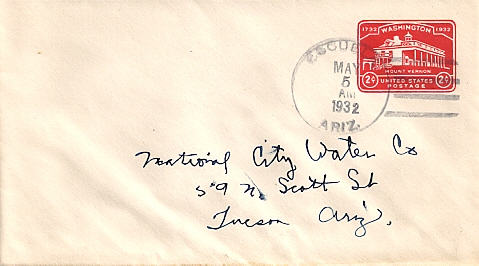 1732 WASHINGTON 1932
MOUNT VERNON
2¢ UNITED STATES 2¢
POSTAGE
MAY
5
AM
1932
ARIZ.
National City Water Co
59 N. Scott St
Tucson Ariz.